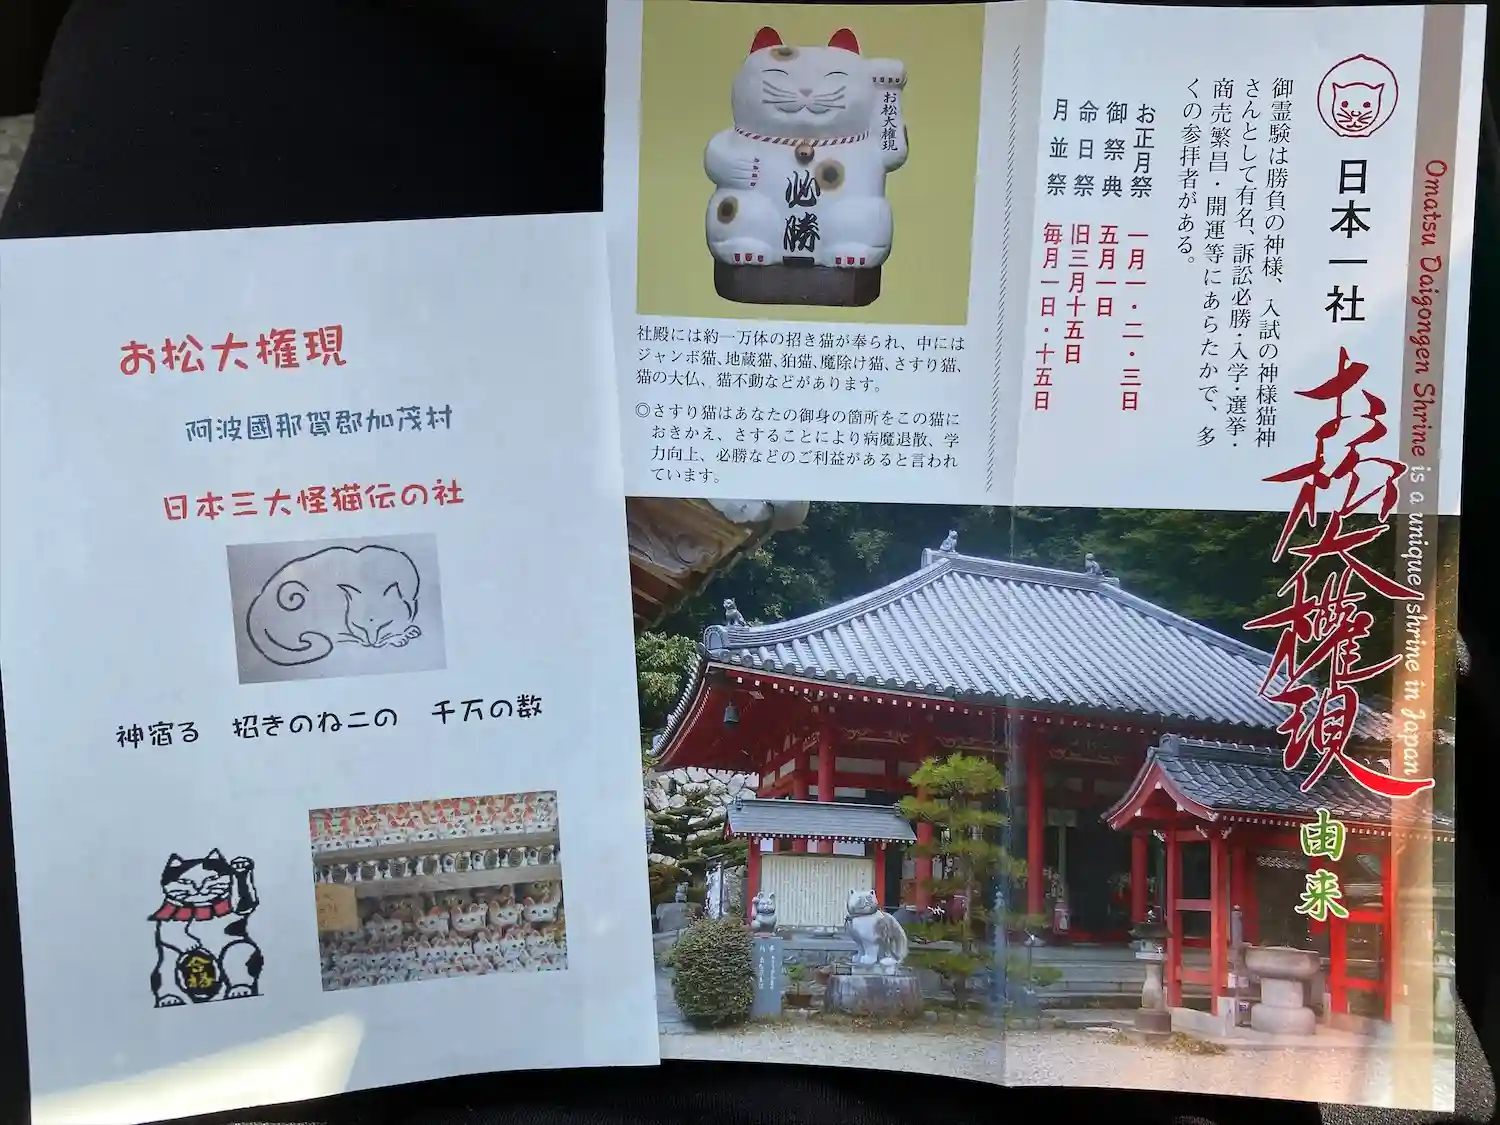 お松大権現
阿波國那賀郡加茂村
日本三大怪猫伝の社
神宿る　招きのねこの　千万の数
合格
お松大権現
必勝
社殿には約一万体の招き猫が奉られ、中には
ジャンボ猫、地蔵猫、狛猫、魔除け猫、さすり猫、
猫の大仏、猫不動などがあります。
◎さすり猫はあなたの御身の箇所をこの猫に
おきかえ、さすることにより病魔退散、学
力向上、必勝などのご利益があると言われ
ています。
Omatsu Daigongen Shrine is a unique shrine in Japan
日本一社
お松大權現
由来
御霊験は勝負の神様、入試の神様猫神
さんとして有名、訴訟必勝・入学・選挙・
商売繁昌・開運等にあらたかで、多
くの参拝者がある。
お正月祭　一月一・二・三日
御祭典　五月一日
命日祭　旧三月十五日
月並祭　毎月一日・十五日